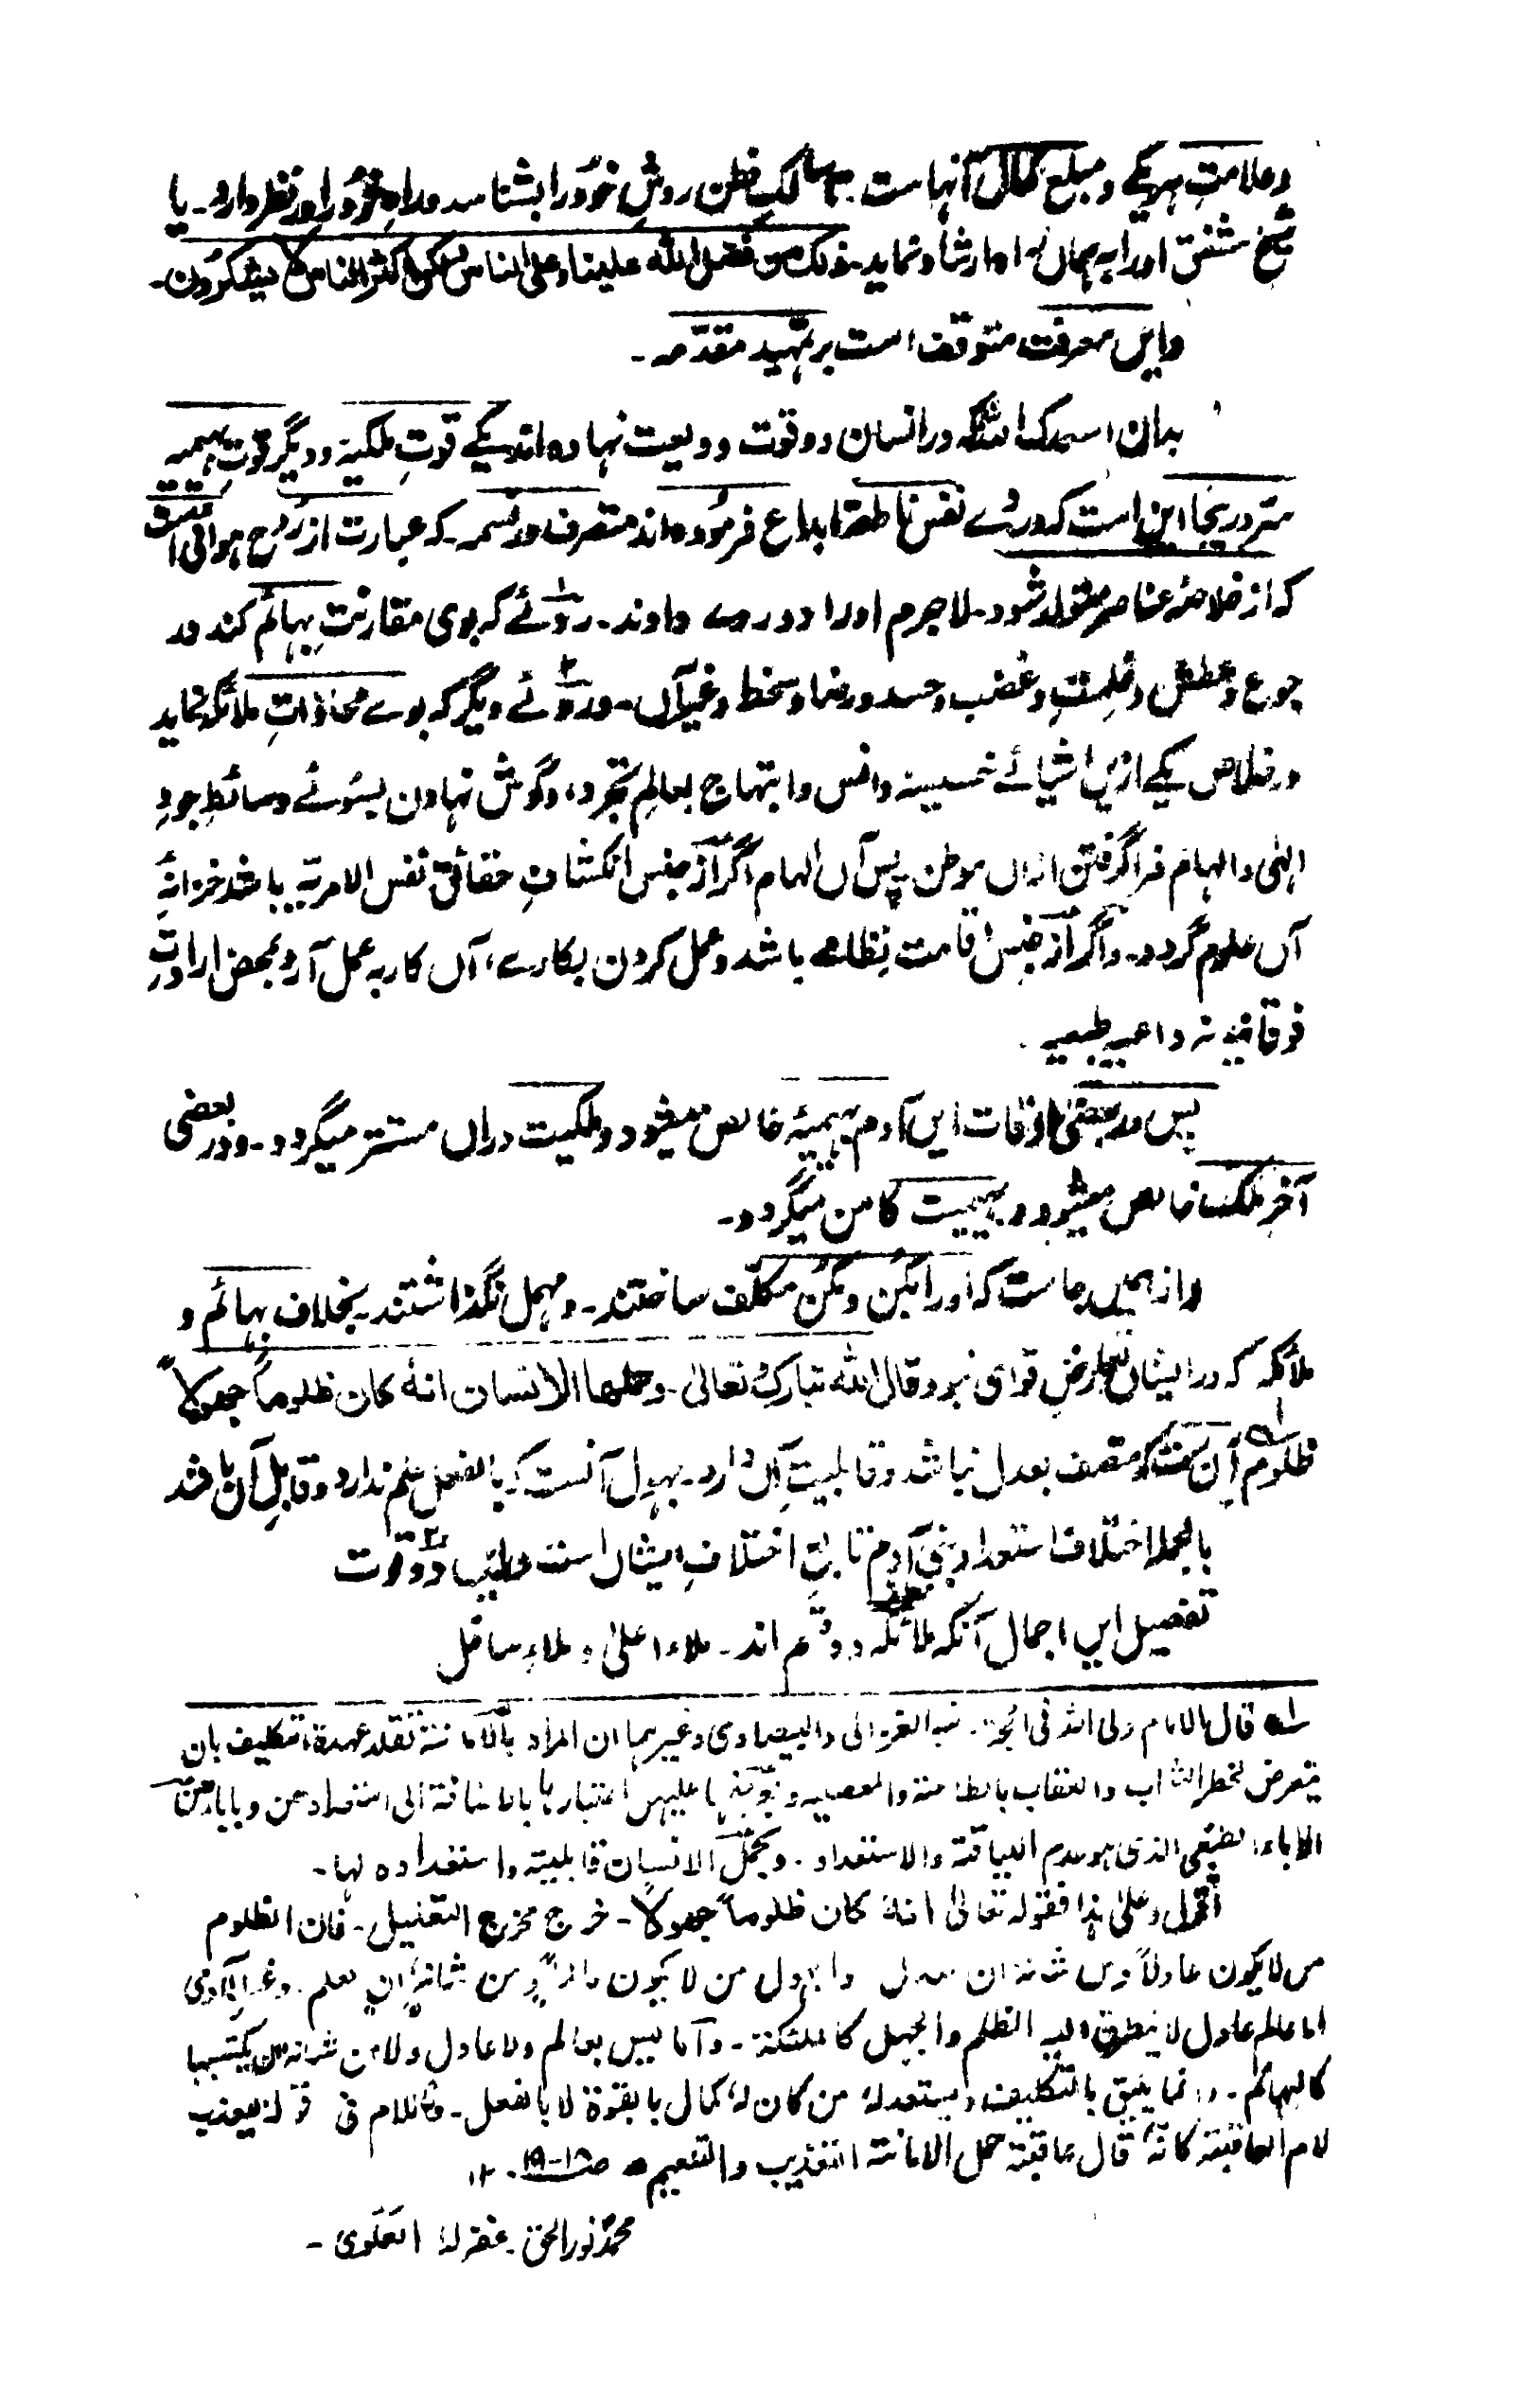 و علامتِ ہریکے و مبلغِ کمال آنہا ست۔ تا سالکِ فطن روشِ خود را بشناسد و راہِ خود را در نظر دارد۔ یا
شیخِ مشفق او را بہ ہماں راہ ارشاد نماید۔ ذلك من فضل الله علينا وعلى الناس ولكن اكثر الناس لا يشكرون۔
و ایں معرفت متوقف است بر تمہید مقدّمہ۔
بدان اسعدک اللہ کہ در انسان دو قوت ودیعت نہادہ اند یکے قوتِ ملکیۃ و دیگر قوتِ بہیمیہ
سرّ دریں جا این است کہ در وے نفس ناطقہ ابداع فرمودہ اند متصرف در نسمہ۔ کہ عبارت از روح ہوائی است
کہ از خلاصۂ عناصر متولد شود۔ لاجرم او را دو روے دادند۔ روئے کہ بوی مقارنتِ بہائم کند در
جوع و عطش و غلمت و غضب و حسد و رضا و سخط و غیر آں۔ و روئے دیگر کہ بوے محاذاتِ ملائکہ نماید
در خلاص یکے ازیں اشیائے خسیسہ و انس و ابتہاج بعالمِ تجرد، و گوش نہادن بسوئے وسائطِ جودِ
الٰہی و الہام فرا گرفتن ازاں موطن۔ پس آں الہام اگر از جنس انکشافِ حقائق نفس الامریّہ باشد خزانۂ
آں علوم گردد۔ و اگر از جنس اقامت نظامے باشد و عمل کردن بکارے، آں کار بہ عمل آرد بمحض ارادتِ
فوقانیہ نہ داعیہ طبعیہ۔
پس در بعضی اوقات ایں آدم بہیمیۂ خالص میشود و ملکیت دراں مستتر میگردد۔ و در بعضی
آخر ملکیت خالص میشود و بہیمیت کامن میگردد۔
و از ہمیں جا ست کہ او را بکن و مکن مکلّف ساختند۔ و مہمل نگذاشتند بخلاف بہائم و
ملائکہ کہ در ایشاں تعارضِ قوای نبود قال اللہ تبارک و تعالیٰ۔ وحملها الانسان انه كان ظلوماً جهولاً
ظلوم آن ست کہ متصف بعدل نباشد و قابلیتِ آں دارد۔ جہول آنست کہ بالفعل علم ندارد و قابلِ آن باشد
بالجملہ اختلاف استعداد بنی آدم تابع اختلافِ ایشاں است در ایں دو قوت
تفصیل ایں اجمال آنکہ ملائکہ دو قسم اند۔ ملاء اعلیٰ و ملاءِ سافل
لہ قال الامام ولی اللہ فی الحجۃ۔ نبہ الغزالی والبیضاوی وغیرہما ان المراد بالامانۃ تقلد عہدۃ التکلیف بان
یتعرض لخطر الثواب والعقاب بالطاعۃ والمعصیۃ وبعرضہا علیہن اعتبارہا بالاضافۃ الی استعدادہن وبابائہن
الاباء الطبیعی الذی ہو عدم اللیاقۃ والاستعداد۔ وبحمل الانسان قابلیتہ واستعدادہ لہا۔
اقول وعلیٰ ہذا فقولہ تعالیٰ انہٗ کان ظلوماً جہولاً۔ خرج مخرج التعلیل۔ فان الظلوم
من لا یکون عادلاً ومن شانہ ان یعدل والجہول من لا یکون عالماً ومن شانہ ان یعلم۔ وغیر الآدمی
اما عالم عادل لا یتطرق الیہ الظلم والجہل کالملئکۃ۔ واما لیس بعالم ولا عادل ولا من شانہ ان یکتسبہا
کالبہائم۔ وانما یلیق بالتکلیف ویستعد لہٗ من کان لہٗ کمال بالقوۃ لا بالفعل۔ واللام فی قولہ لیعذب
لام العاقبۃ کانہٗ قال عاقبۃ حمل الامانۃ التعذیب والتنعیم ؁ صـ ۱۸-۱۹۔ ۱۲
محمد نور الحق۔ غفر لہٗ العلوی۔